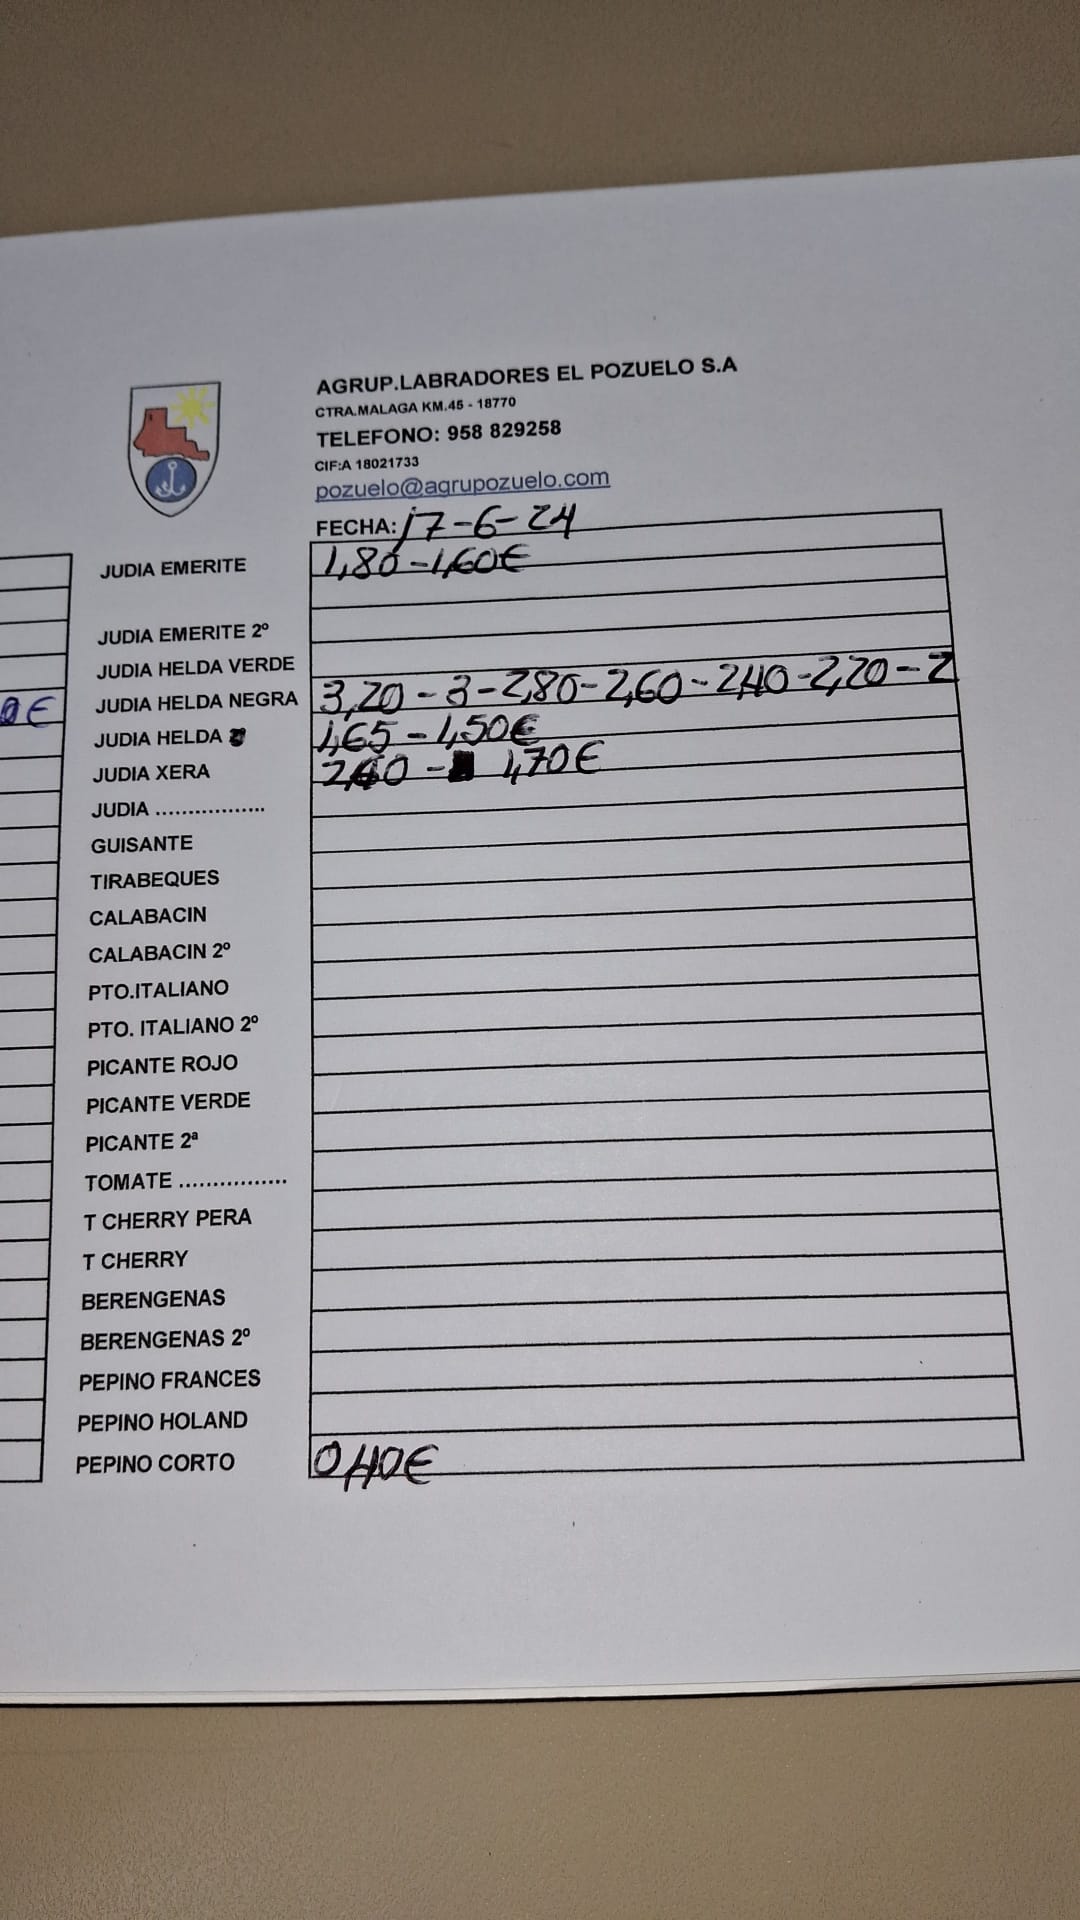 AGRUP.LABRADORES EL POZUELO S.A
CTRA.MALAGA KM.45 - 18770
TELEFONO: 958 829258
CIF:A 18021733
pozuelo@agrupozuelo.com
FECHA: 17-6-24
JUDIA EMERITE 1,80-1,60€
JUDIA EMERITE 2º
JUDIA HELDA VERDE
0€ JUDIA HELDA NEGRA 3,20 - 3 - 2,80 - 2,60 - 2,40 - 2,20 - 2
JUDIA HELDA 1,65 - 1,50€
JUDIA XERA - 1,70€
JUDIA .................
GUISANTE
TIRABEQUES
CALABACIN
CALABACIN 2º
PTO.ITALIANO
PTO. ITALIANO 2º
PICANTE ROJO
PICANTE VERDE
PICANTE 2ª
TOMATE ................
T CHERRY PERA
T CHERRY
BERENGENAS
BERENGENAS 2º
PEPINO FRANCES
PEPINO HOLAND
PEPINO CORTO 0,40€